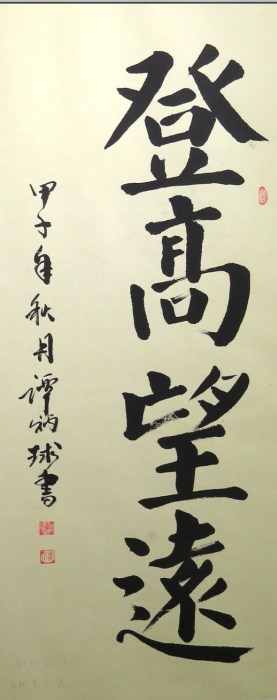 登高望遠
甲子年秋月譚炳球書